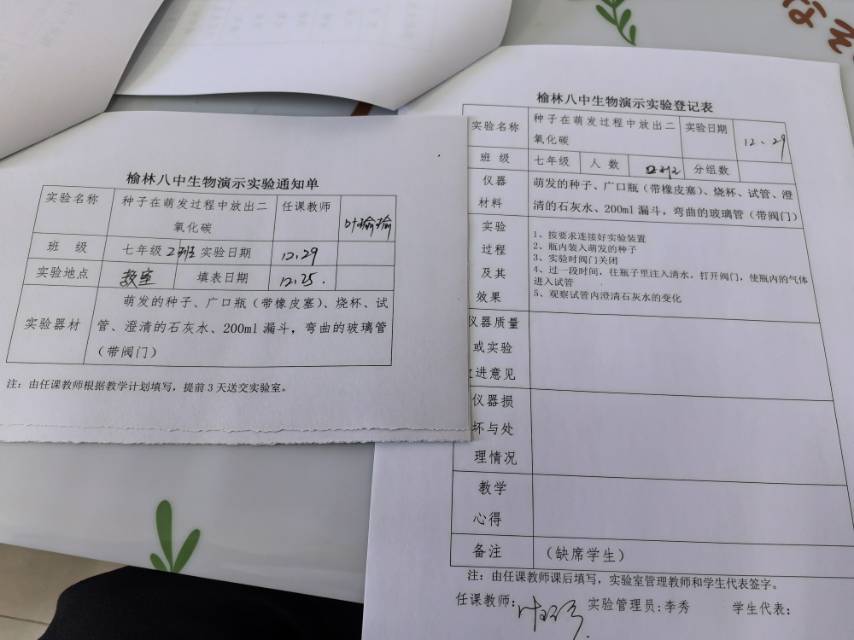 榆林八中生物演示实验通知单
实验名称 种子在萌发过程中放出二氧化碳 任课教师 叶瑜瑜
班 级 七年级2班 实验日期 12.29
实验地点 教室 填表日期 12.25.
实验器材 萌发的种子、广口瓶（带橡皮塞）、烧杯、试
管、澄清的石灰水、200ml漏斗，弯曲的玻璃管
（带阀门）
注：由任课教师根据教学计划填写，提前3天送交实验室。
榆林八中生物演示实验登记表
实验名称 种子在萌发过程中放出二
氧化碳 实验日期 12、29
班 级 七年级 人 数 分组数
仪器
材料
萌发的种子、广口瓶（带橡皮塞）、烧杯、试管、澄
清的石灰水、200ml漏斗，弯曲的玻璃管（带阀门）
实验
过程
及其
效果
1、按要求连接好实验装置
2、瓶内装入萌发的种子
3、实验时阀门关闭
4、过一段时间，往瓶子里注入清水，打开阀门，使瓶内的气体
进入试管
5、观察试管内澄清石灰水的变化
仪器质量
或实验
进意见
仪器损
坏与处
理情况
教学
心得
备注 （缺席学生）
注：由任课教师课后填写，实验室管理教师和学生代表签字。
任课教师: 实验管理员:李秀 学生代表: